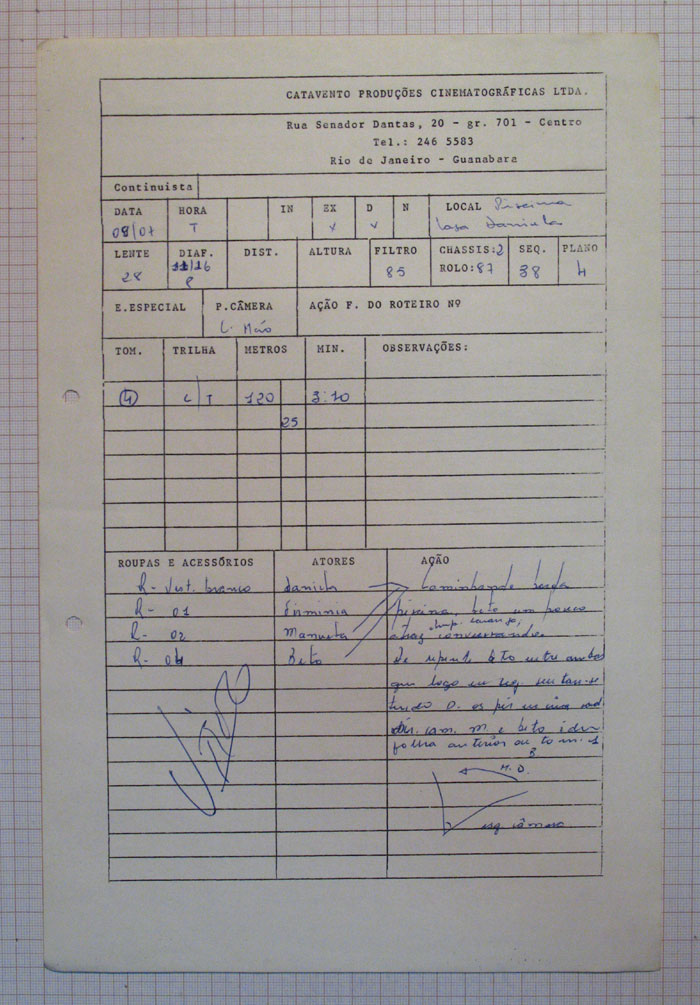 CATAVENTO PRODUÇÕES CINEMATOGRÁFICAS LTDA.
Rua Senador Dantas, 20 - gr. 701 - Centro
Tel.: 246 5583
Rio de Janeiro - Guanabara
Continuista
DATA HORA IN EX D N LOCAL Piscina
09/07 T x x Casa Daniela
LENTE DIAF. DIST. ALTURA FILTRO CHASSIS:2 SEQ. PLANO
28 11/16 85 ROLO:87 38 4
P
E.ESPECIAL P.CÂMERA AÇÃO F. DO ROTEIRO Nº
C. Mão
TOM. TRILHA METROS MIN. OBSERVAÇÕES:
4 C/T 120 3:10
25
ROUPAS E ACESSÓRIOS ATORES AÇÃO
R- Vest. branco Daniela Caminhando
R- 01 Firminia piscina, beto um pouco
R- 02 Manuela atraz conversando.
R- 04 Beto De repente beto entre ambas
que logo em seg. sentam-se
D. os pés
dir. cam. M. e beto
folha anterior ou tom. 1
M. D. B.
esq câmera